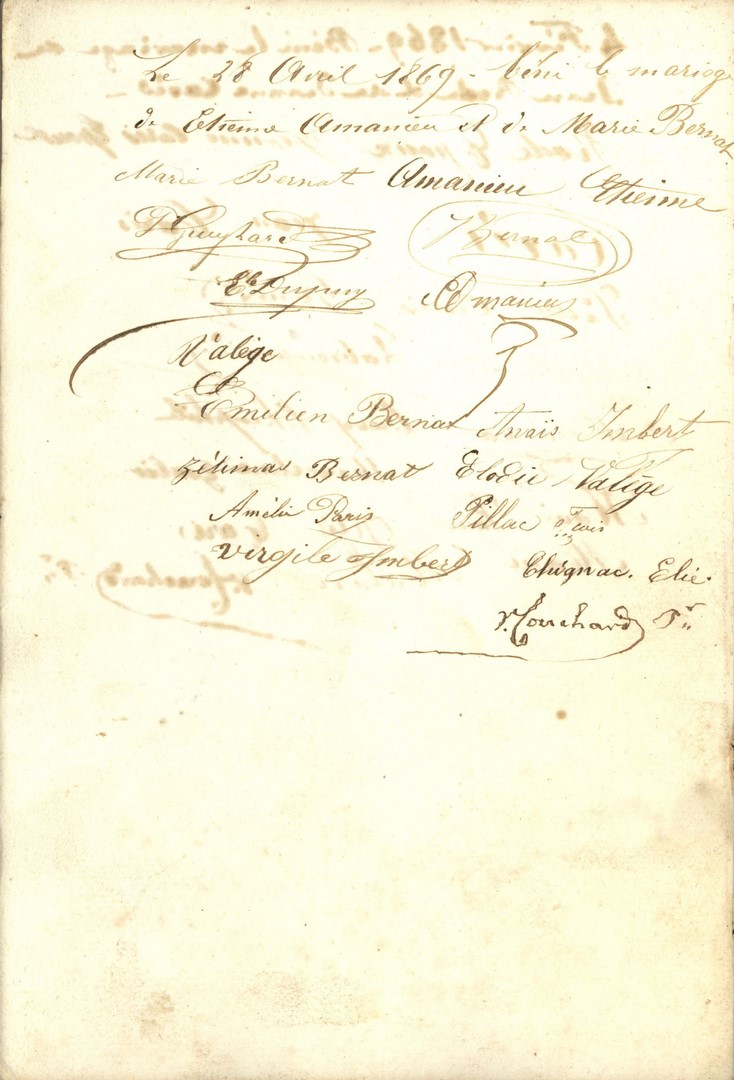 Le 28 Avril 1869 - béni le mariage
de Etienne Amanieu et de Marie Bernat
Marie Bernat Amanieu Etienne
Bernat
Et. Dupuy Amanieu
Valége
Emilien Bernat Anaïs Imbert
Zélimas Bernat Elodie Valége
Amélie Paris Pillac
Virgile Imbert Chignac. Elie.
Touchard Pr